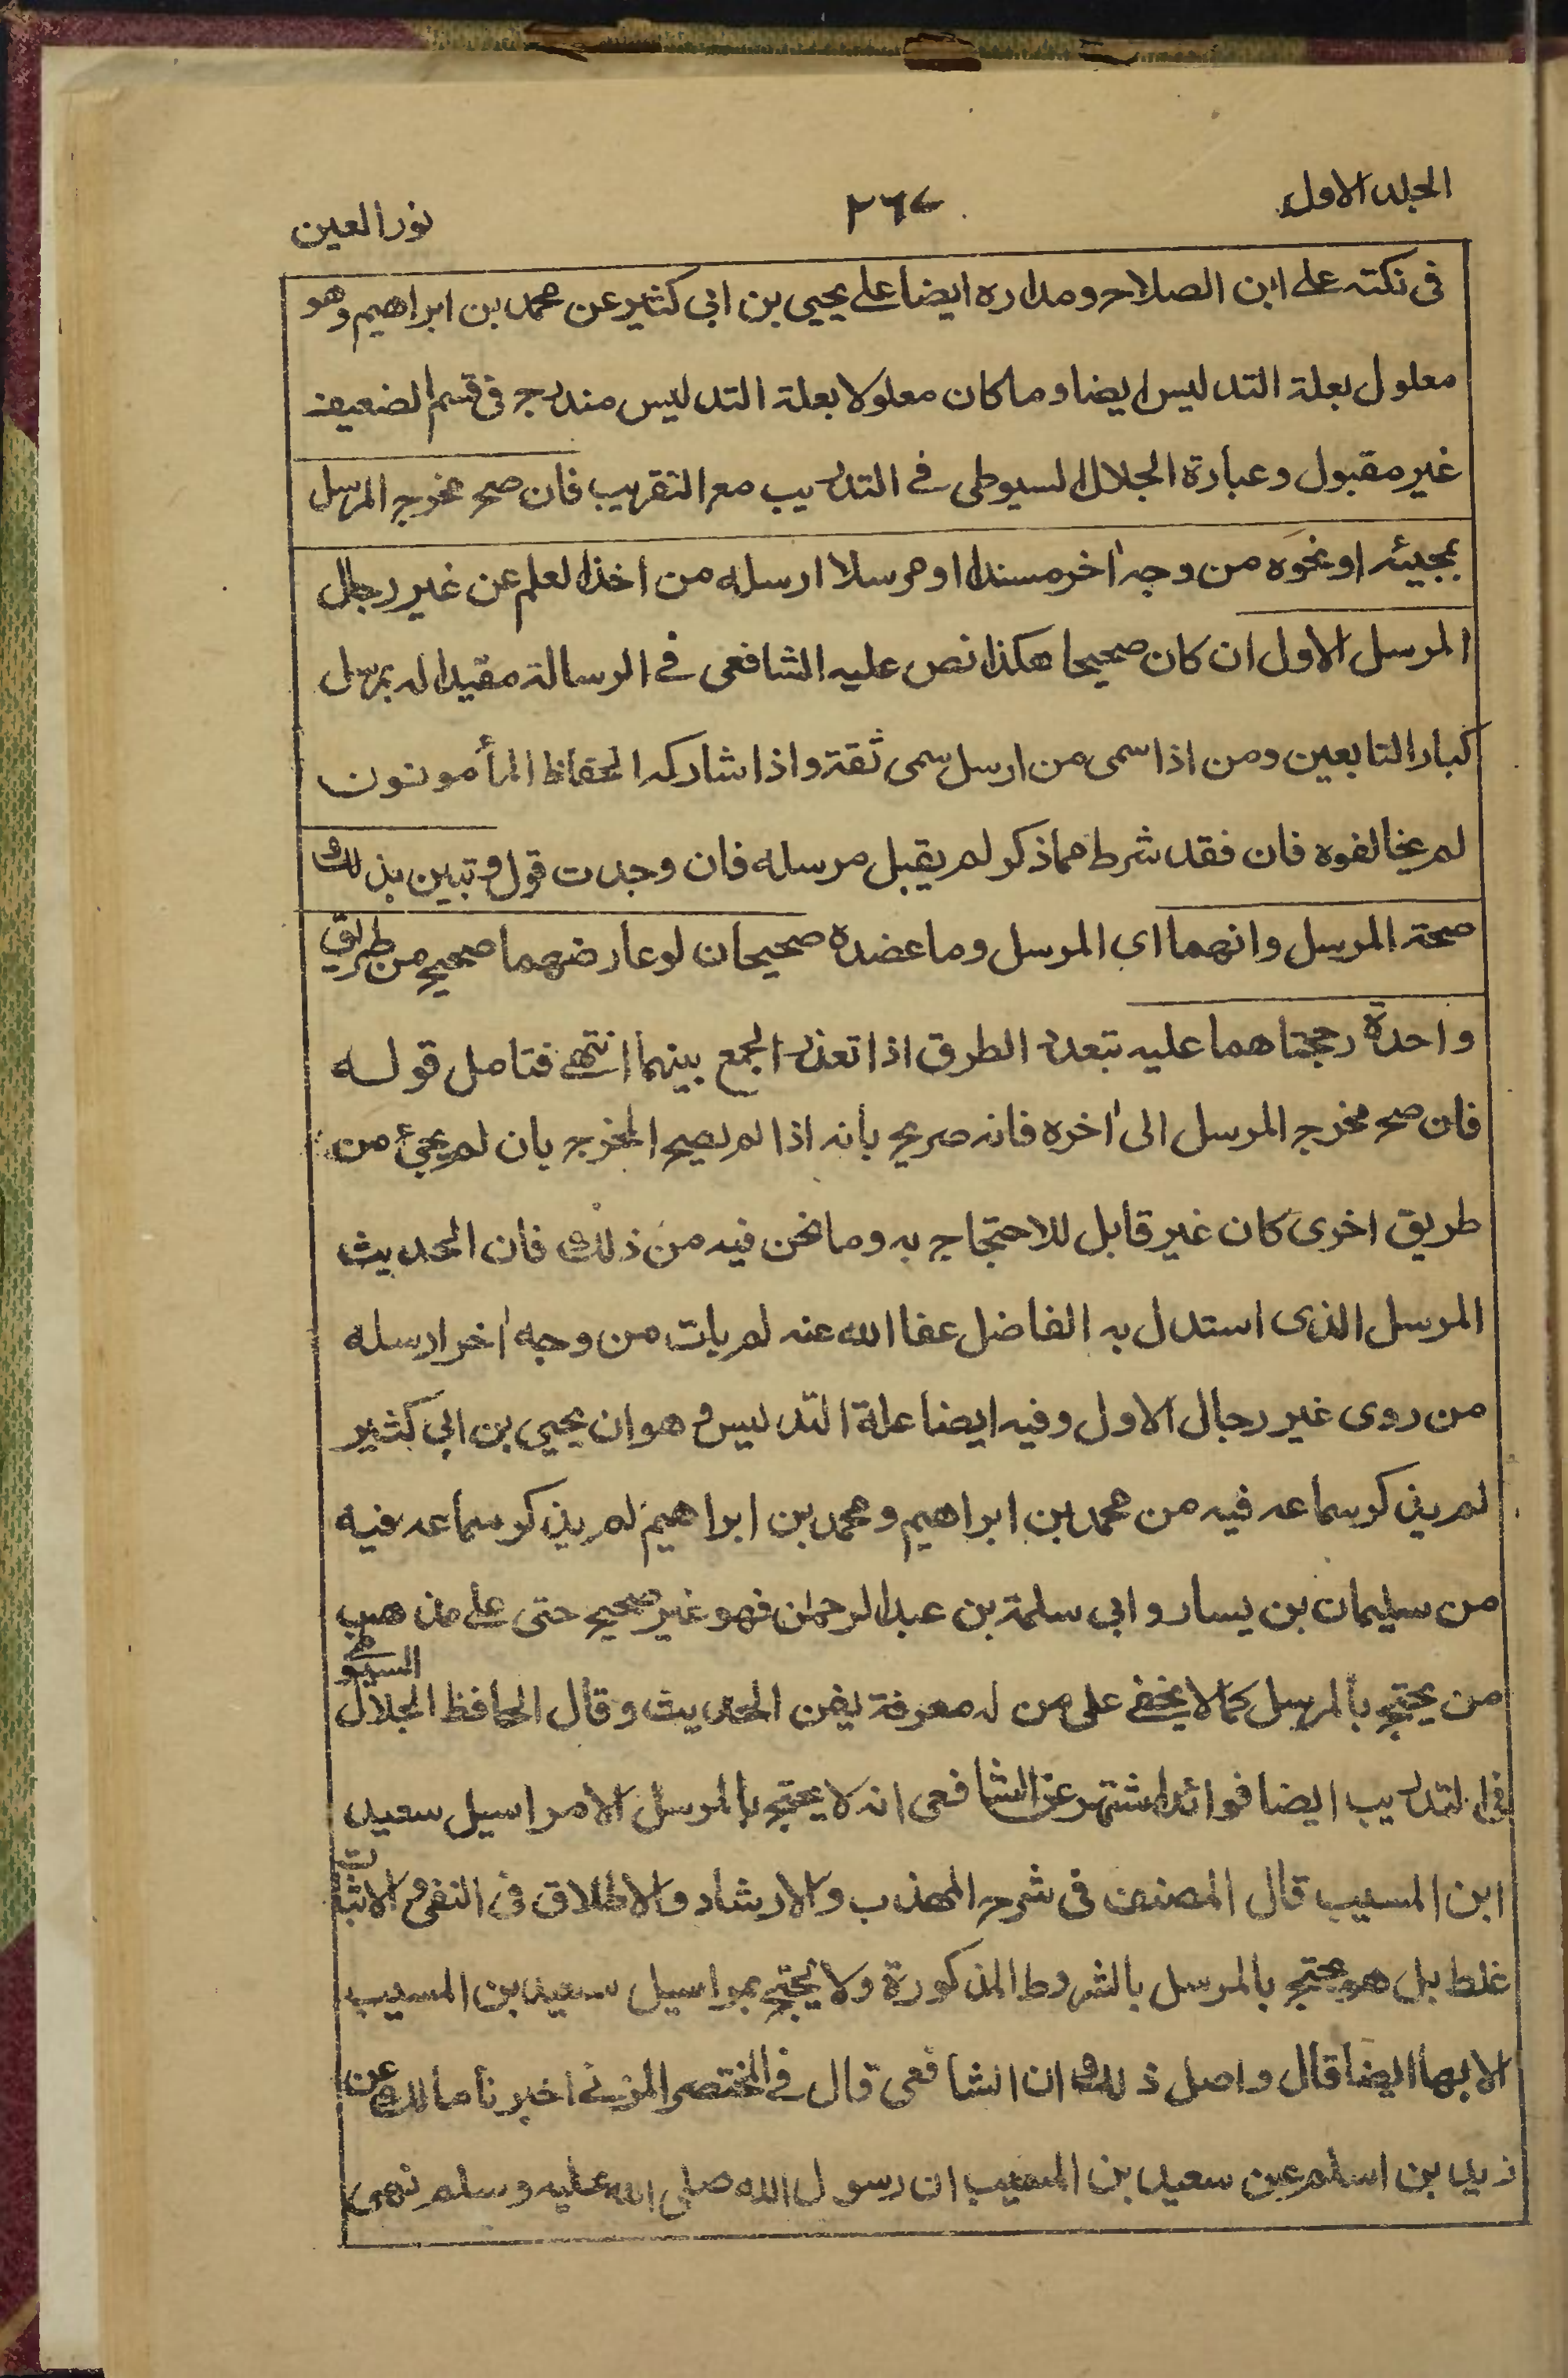 الجلد الاول
٢٦٧
نور العين
فى نكته على ابن الصلاح ومداره ايضا على يحيى بن ابى كثير عن محمد بن ابراهيم وهو
معلول بعلة التدليس ايضا وما كان معلولا بعلة التدليس مندرج فى قسم الضعيف
غير مقبول وعبارة الجلال السيوطى فے التدريب مع التقريب فان صح مخرج المرسل
بمجيئه او نحوه من وجه اٰخر مسندا او مرسلا ارسله من اخذ العلم عن غير رجال
المرسل الاول ان كان صحيحا هكذا نص عليه الشافعى فے الرسالة مقيدا له بمرسل
كبار التابعين ومن اذا سمى من ارسل سمى ثقة واذا شاركه الحفاظ المأمونون
لم يخالفوه فان فقد شرط مما ذكر لم يقبل مرسله فان وجدت قبل وتبين بذلك
صحة المرسل وانهما اى المرسل وما عضده صحيحان لو عارضهما صحيح من طريق
واحدة رجحناهما عليه بتعدد الطرق اذا تعذر الجمع بينهما انتهے فتامل قوله
فان صح مخرج المرسل الى اٰخره فانه صريح بأنه اذا لم يصح المخرج بان لم يجئ من
طريق اخرى كان غير قابل للاحتجاج به وما نحن فيه من ذلك فان الحديث
المرسل الذى استدل به الفاضل عفا الله عنه لم يات من وجه اٰخر ارسله
من روى غير رجال الاول وفيه ايضا علة التدليس وهو ان يحيى بن ابى كثير
لم يذكر سماعه فيه من محمد بن ابراهيم ومحمد بن ابراهيم لم يذكر سماعه فيه
من سليمان بن يسار وابى سلمة بن عبد الرحمٰن فهو غير صحيح حتى على مذهب
من يحتج بالمرسل كما لا يخفى على من له معرفة بفن الحديث وقال الحافظ الجلال السيوطى
فى التدريب ايضا فوائد اشتهر عن الشافعى انه لا يحتج بالمرسل الا مراسيل سعيد
ابن المسيب قال المصنف فى شرح المهذب والارشاد والاطلاق فى النفى والاثبات
غلط بل هو محتج بالمرسل بالشروط المذكورة ولا يحتج بمراسيل سعيد بن المسيب
الا بها ايضا قال واصل ذلك ان الشافعى قال فے المختصر المزنے اخبرنا مالك عن
زيد بن اسلم عن سعيد بن المسيب ان رسول الله صلى الله عليه وسلم نهى